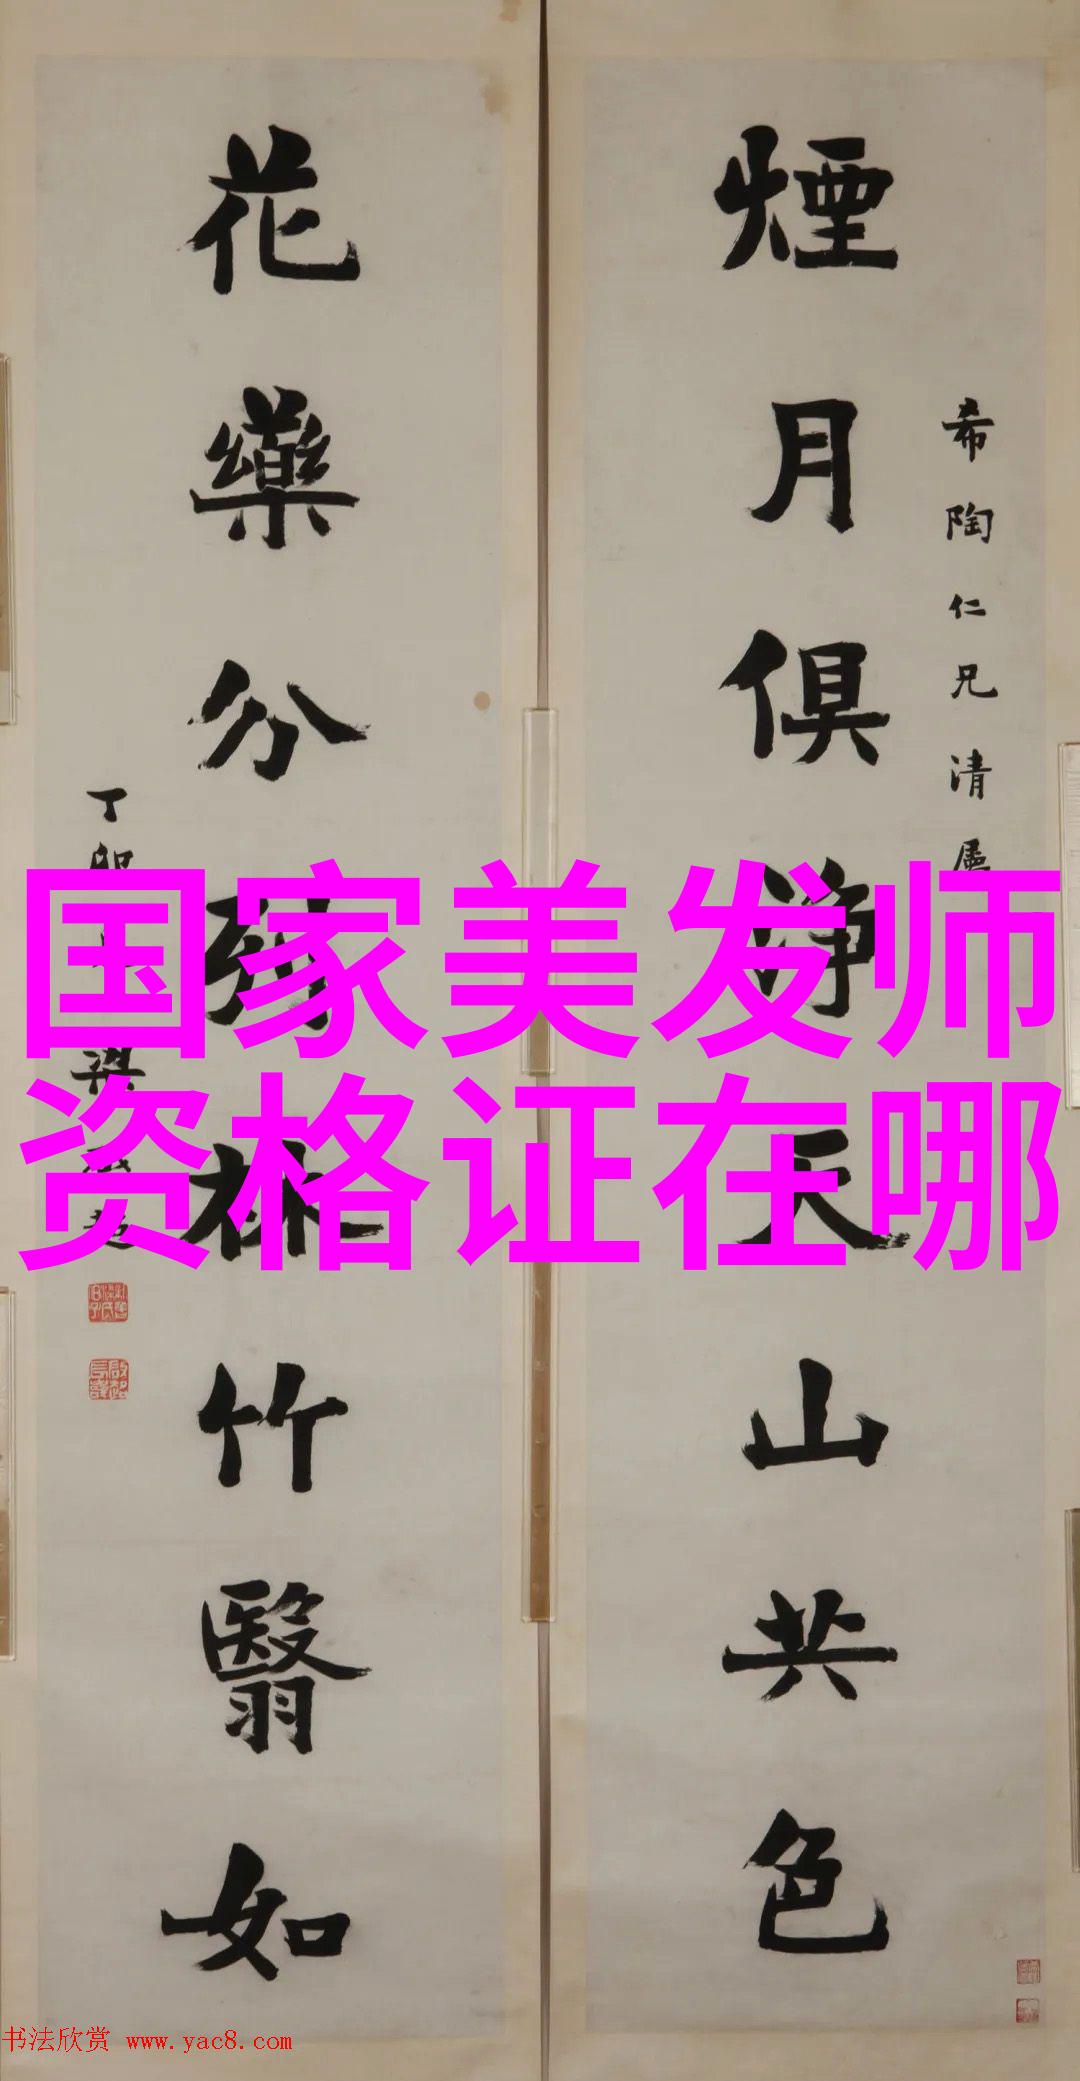 煙月俱淨天山共色
希陶仁兄清屬
花藥分列林竹翳如
丁卯
梁啟超
国家美发师
资格证在哪
书法欣赏 www.yac8.com